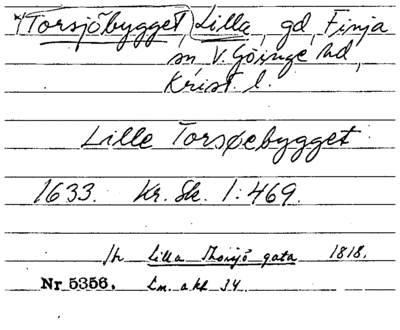 *Torsjöbygget, Lilla, gd, Finja
sn V. Göinge hd,
Krist. l.
Lille Torsøebygget
1633. Kr. Sk. 1:469.
Lilla gata 1818.
Nr 5356. Lm. akt 34.